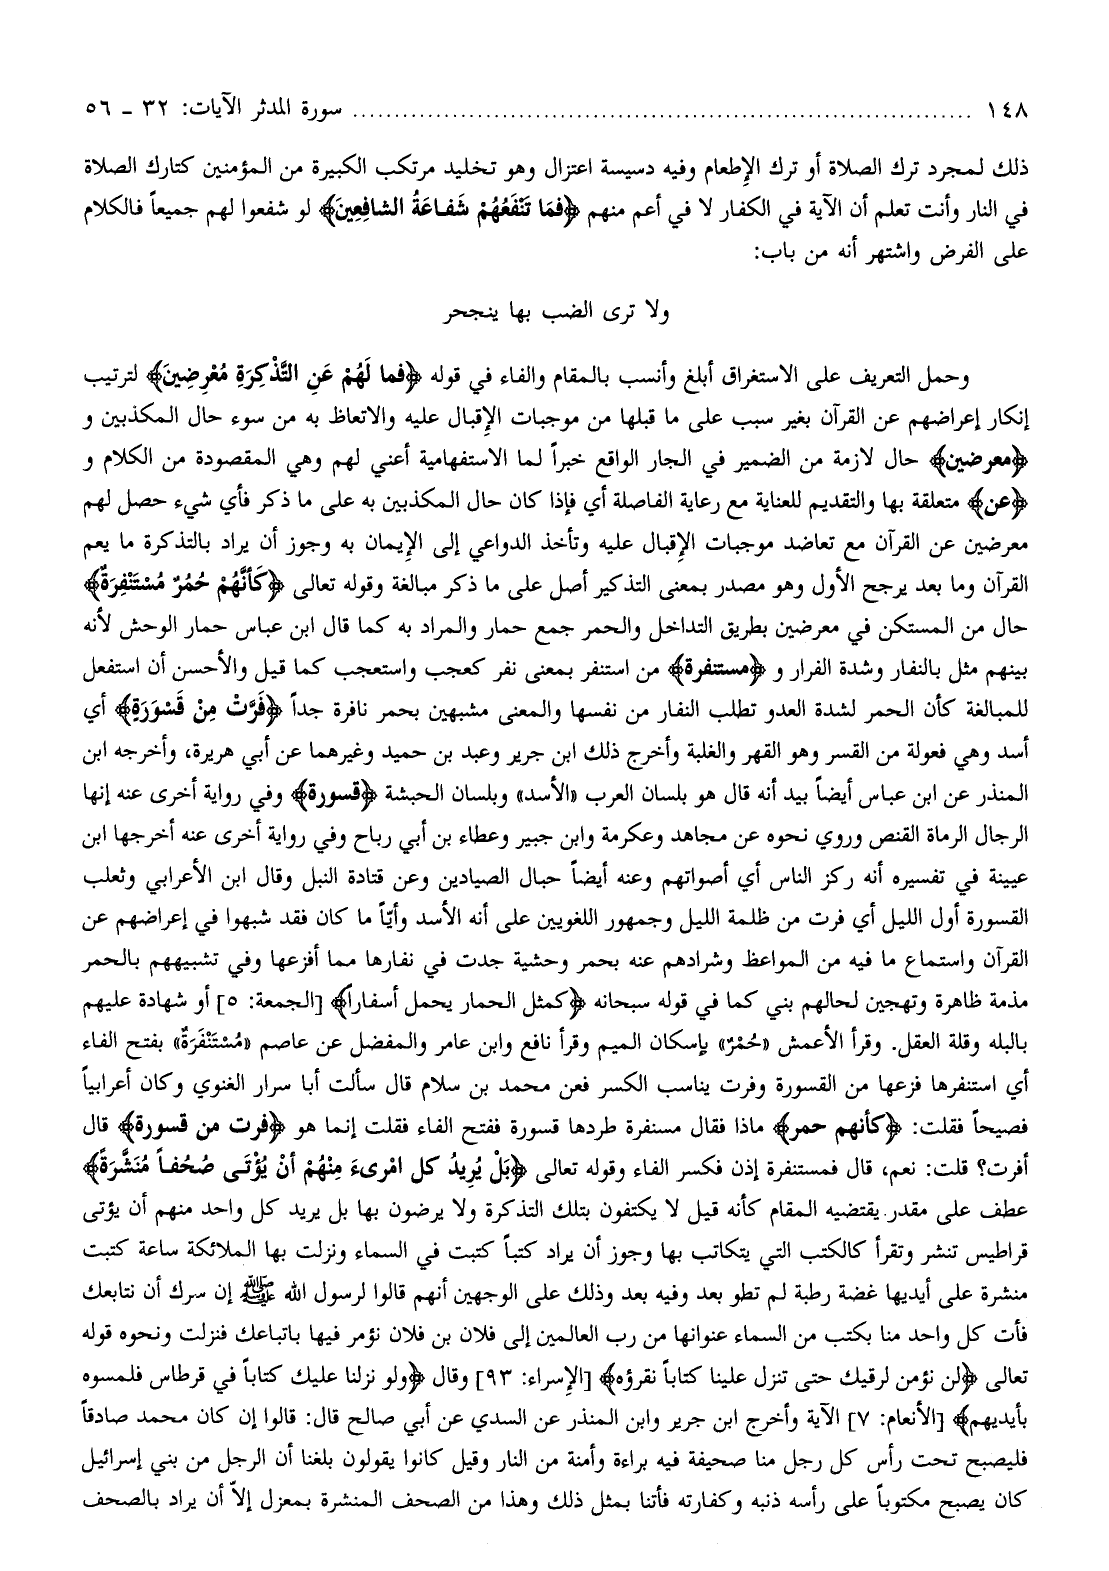 ١٤٨ ........................................................................ سورة المدثر الآيات: ٣٢ ـ ٥٦
ذلك لمجرد ترك الصلاة أو ترك الإِطعام وفيه دسيسة اعتزال وهو تخليد مرتكب الكبيرة من المؤمنين كتارك الصلاة
في النار وأنت تعلم أن الآية في الكفار لا في أعم منهم ﴿فَمَا تَنْفَعُهُمْ شَفَاعَةُ الشافِعِينَ﴾ لو شفعوا لهم جميعاً فالكلام
على الفرض واشتهر أنه من باب:
ولا ترى الضب بها ينجحر
وحمل التعريف على الاستغراق أبلغ وأنسب بالمقام والفاء في قوله ﴿فما لَهُمْ عَنِ التَّذْكِرَةِ مُعْرِضِينَ﴾ لترتيب
إنكار إعراضهم عن القرآن بغير سبب على ما قبلها من موجبات الإِقبال عليه والاتعاظ به من سوء حال المكذبين و
﴿معرضين﴾ حال لازمة من الضمير في الجار الواقع خبراً لما الاستفهامية أعني لهم وهي المقصودة من الكلام و
﴿عن﴾ متعلقة بها والتقديم للعناية مع رعاية الفاصلة أي فإذا كان حال المكذبين به على ما ذكر فأي شيء حصل لهم
معرضين عن القرآن مع تعاضد موجبات الإِقبال عليه وتأخذ الدواعي إلى الإِيمان به وجوز أن يراد بالتذكرة ما يعم
القرآن وما بعد يرجح الأول وهو مصدر بمعنى التذكير أصل على ما ذكر مبالغة وقوله تعالى ﴿كَأَنَّهُمْ حُمُرٌ مُسْتَنْفِرَةٌ﴾
حال من المستكن في معرضين بطريق التداخل والحمر جمع حمار والمراد به كما قال ابن عباس حمار الوحش لأنه
بينهم مثل بالنفار وشدة الفرار و ﴿مستنفرة﴾ من استنفر بمعنى نفر كعجب واستعجب كما قيل والأحسن أن استفعل
للمبالغة كأن الحمر لشدة العدو تطلب النفار من نفسها والمعنى مشبهين بحمر نافرة جداً ﴿فَرَّتْ مِنْ قَسْوَرَةٍ﴾ أي
أسد وهي فعولة من القسر وهو القهر والغلبة وأخرج ذلك ابن جرير وعبد بن حميد وغيرهما عن أبي هريرة، وأخرجه ابن
المنذر عن ابن عباس أيضاً بيد أنه قال هو بلسان العرب «الأسد» وبلسان الحبشة ﴿قسورة﴾ وفي رواية أخرى عنه إنها
الرجال الرماة القنص وروي نحوه عن مجاهد وعكرمة وابن جبير وعطاء بن أبي رباح وفي رواية أخرى عنه أخرجها ابن
عيينة في تفسيره أنه ركز الناس أي أصواتهم وعنه أيضاً حبال الصيادين وعن قتادة النبل وقال ابن الأعرابي وثعلب
القسورة أول الليل أي فرت من ظلمة الليل وجمهور اللغويين على أنه الأسد وأيّاً ما كان فقد شبهوا في إعراضهم عن
القرآن واستماع ما فيه من المواعظ وشرادهم عنه بحمر وحشية جدت في نفارها مما أفزعها وفي تشبيههم بالحمر
مذمة ظاهرة وتهجين لحالهم بني كما في قوله سبحانه ﴿كمثل الحمار يحمل أسفاراً﴾ [الجمعة: ٥] أو شهادة عليهم
بالبله وقلة العقل. وقرأ الأعمش «حُمْرٌ» بإسكان الميم وقرأ نافع وابن عامر والمفضل عن عاصم «مُسْتَنْفَرَةٌ» بفتح الفاء
أي استنفرها فزعها من القسورة وفرت يناسب الكسر فعن محمد بن سلام قال سألت أبا سرار الغنوي وكان أعرابياً
فصيحاً فقلت: ﴿كأنهم حمر﴾ ماذا فقال مسنفرة طردها قسورة ففتح الفاء فقلت إنما هو ﴿فرت من قسورة﴾ قال
أفرت؟ قلت: نعم، قال فمستنفرة إذن فكسر الفاء وقوله تعالى ﴿بَلْ يُرِيدُ كل امْرِىءَ مِنْهُمْ أنْ يُؤْتَى صُحُفاً مُنَشَّرَةً﴾
عطف على مقدر يقتضيه المقام كأنه قيل لا يكتفون بتلك التذكرة ولا يرضون بها بل يريد كل واحد منهم أن يؤتى
قراطيس تنشر وتقرأ كالكتب التي يتكاتب بها وجوز أن يراد كتباً كتبت في السماء ونزلت بها الملائكة ساعة كتبت
منشرة على أيديها غضة رطبة لم تطو بعد وفيه بعد وذلك على الوجهين أنهم قالوا لرسول الله ﷺ إن سرك أن نتابعك
فأت كل واحد منا بكتب من السماء عنوانها من رب العالمين إلى فلان بن فلان نؤمر فيها باتباعك فنزلت ونحوه قوله
تعالى ﴿لن نؤمن لرقيك حتى تنزل علينا كتاباً نقرؤه﴾ [الإِسراء: ٩٣] وقال ﴿ولو نزلنا عليك كتاباً في قرطاس فلمسوه
بأيديهم﴾ [الأنعام: ٧] الآية وأخرج ابن جرير وابن المنذر عن السدي عن أبي صالح قال: قالوا إن كان محمد صادقاً
فليصبح تحت رأس كل رجل منا صحيفة فيه براءة وأمنة من النار وقيل كانوا يقولون بلغنا أن الرجل من بني إسرائيل
كان يصبح مكتوباً على رأسه ذنبه وكفارته فأتنا بمثل ذلك وهذا من الصحف المنشرة بمعزل إلاّ أن يراد بالصحف